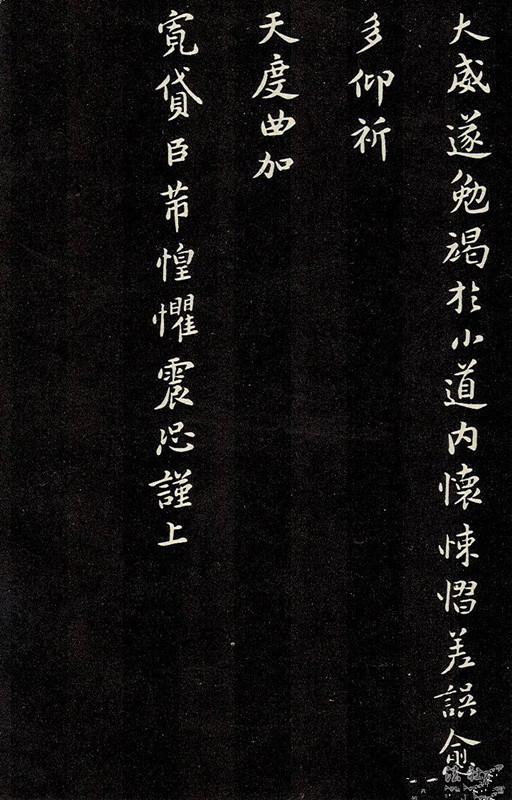 大威遂勉竭於小道内懷悚慴差誤俞
多仰祈
天度曲加
寬貸臣芾惶懼震恐謹上